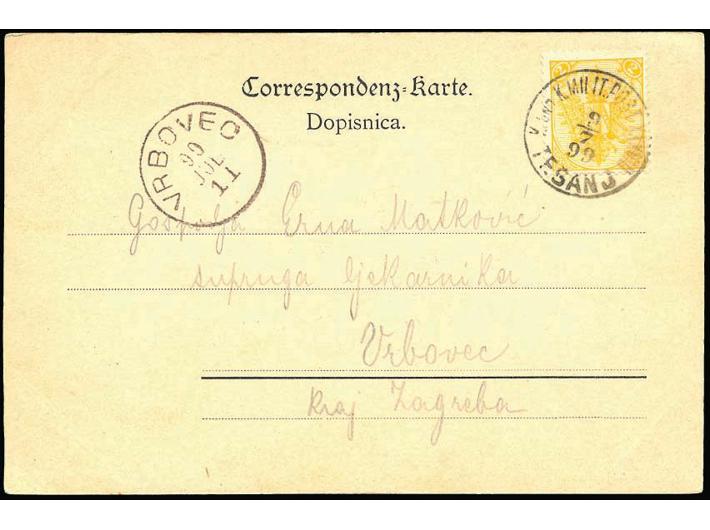 Correspondenz-Karte.
Dopisnica.
VRBOVEC
99
JUL
11
K. und K. MILIT. POST
9/7
99
TEŠANJ
2
2
Gospodja Erna Matković
supruga ljekarnika
Vrbovec
kraj Zagreba